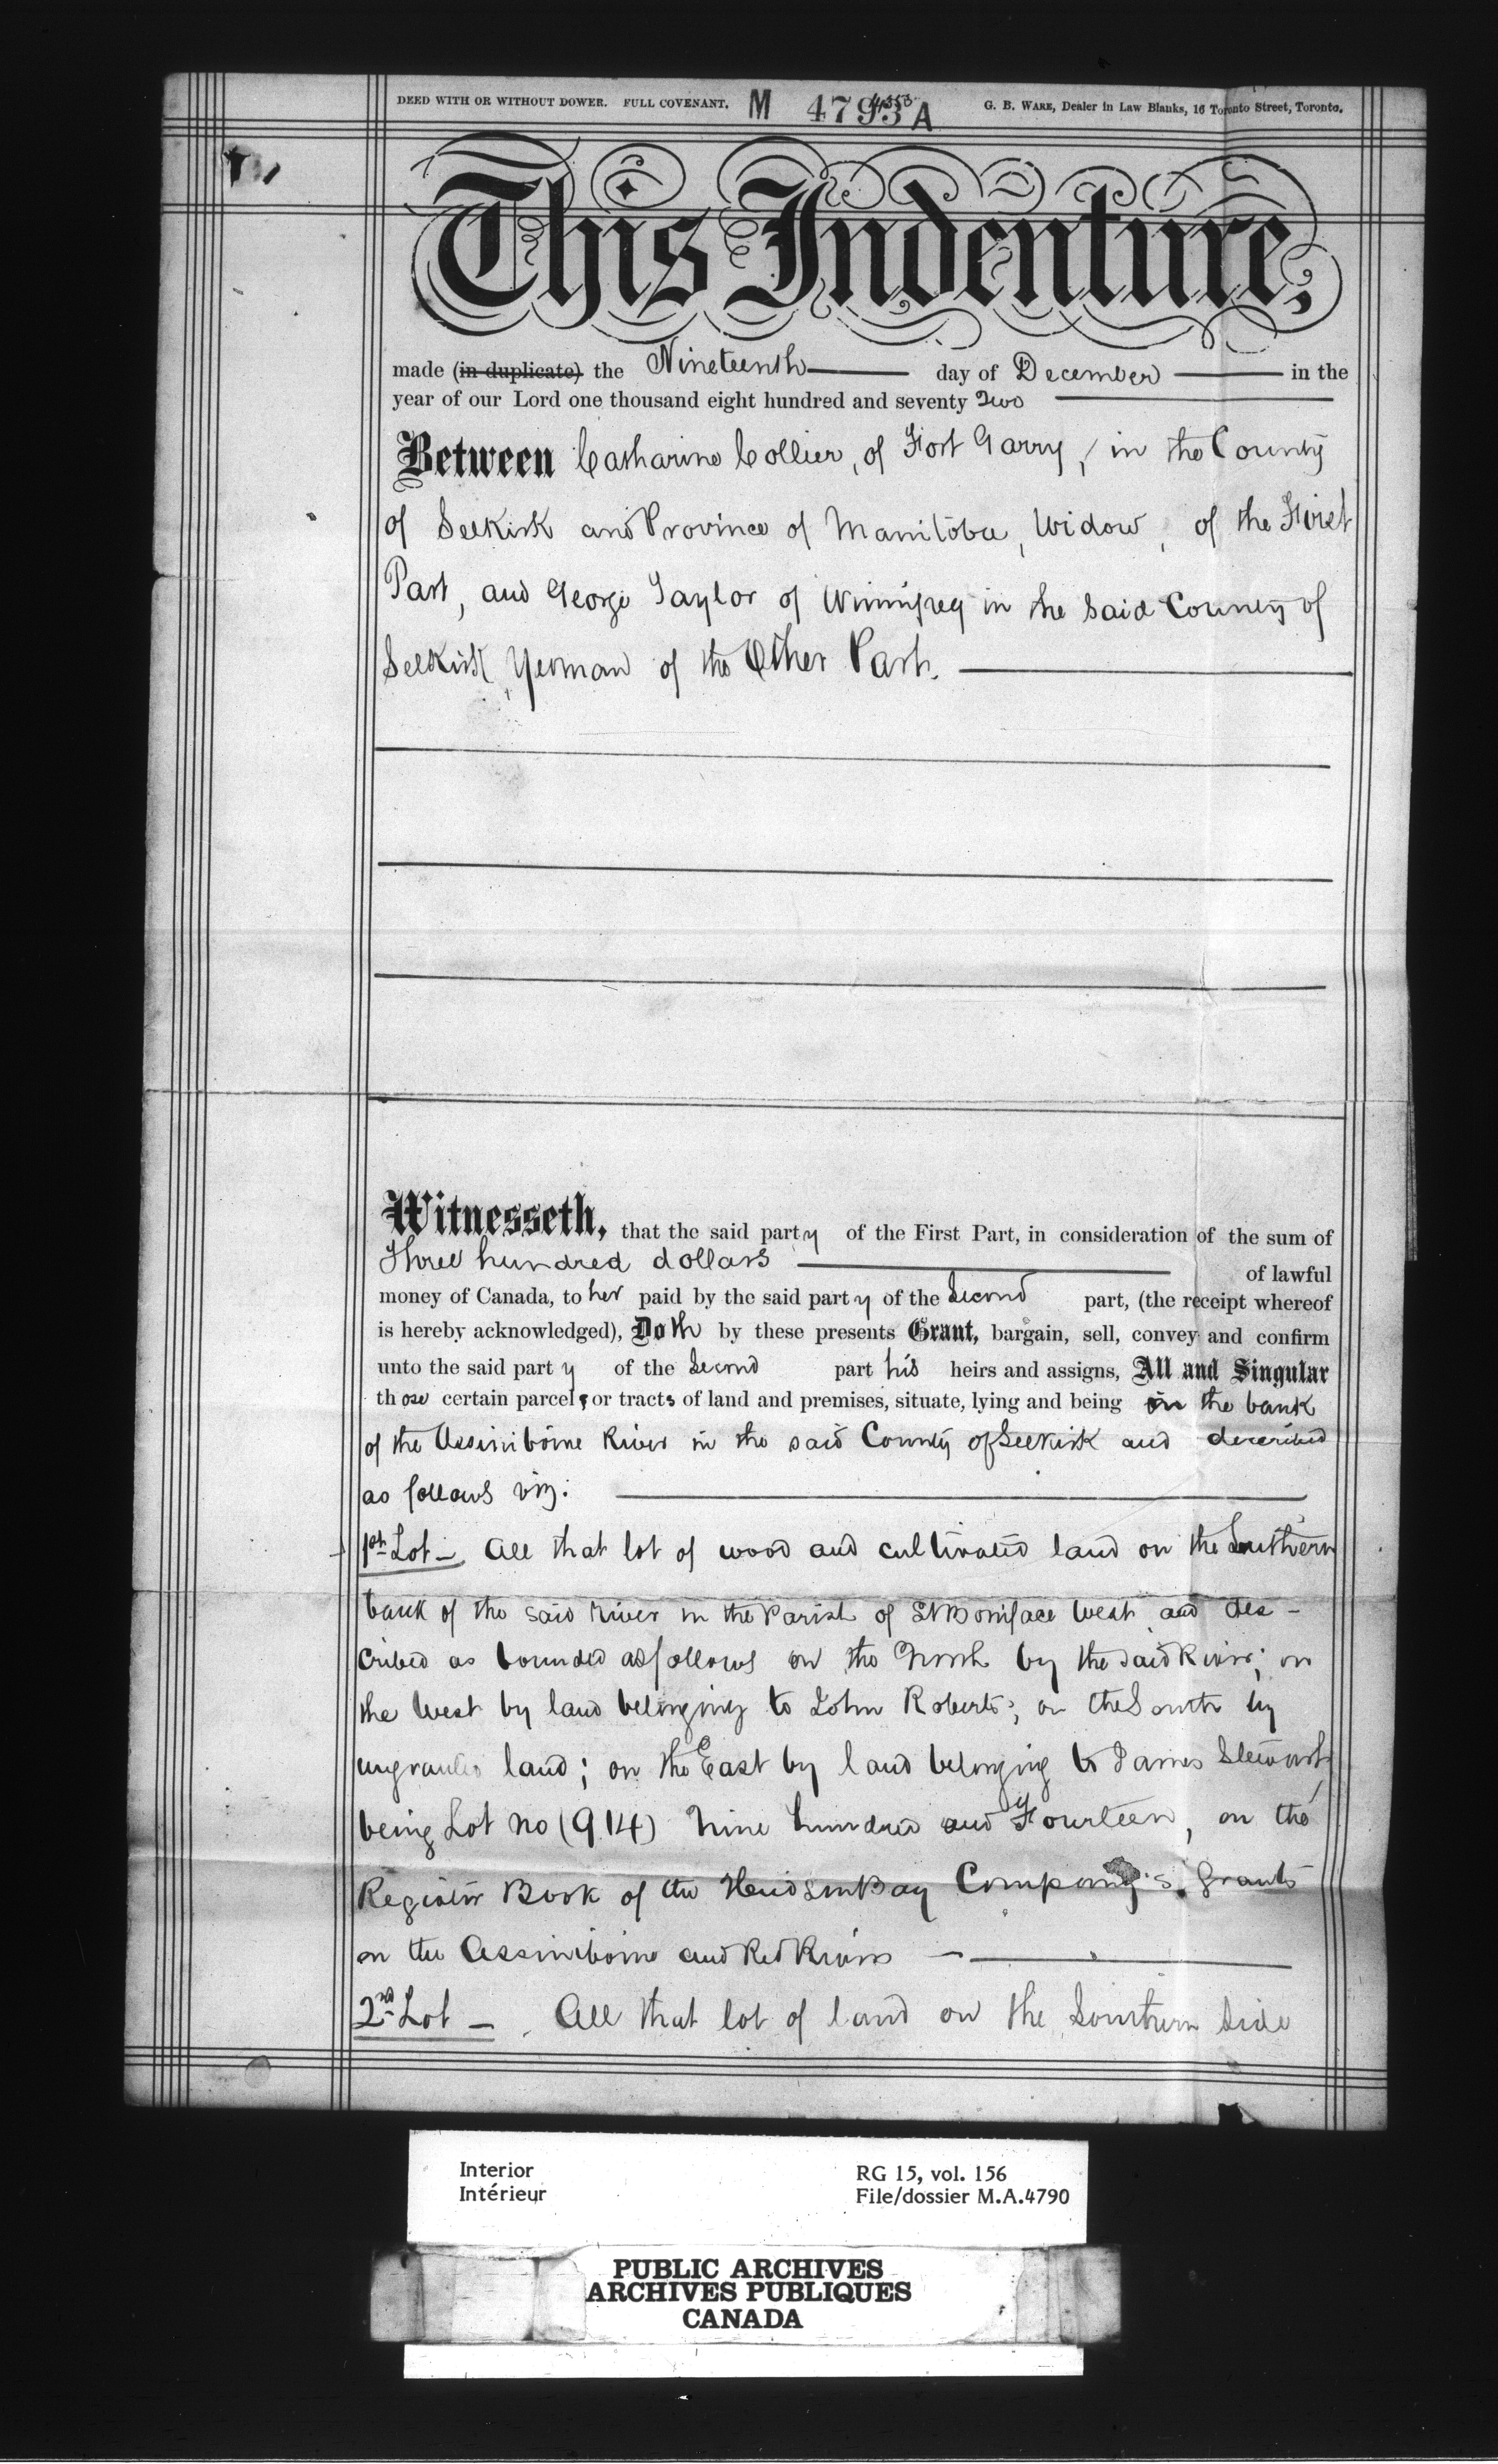 DEED WITH OR WITHOUT DOWER. FULL COVENANT. M 4793 A G. B. WARE, Dealer in Law Blanks, 16 Toronto Street, Toronto.
This Indenture,
made (in duplicate) the Nineteenth day of December in the
year of our Lord one thousand eight hundred and seventy Two
Between Catharine Collier, of Fort Garry, in the County
of Selkirk and Province of Manitoba, Widow, of the First
Part, and George Taylor of Winnipeg in the said County of
Selkirk, Yeoman of the Other Part.
Witnesseth, that the said party of the First Part, in consideration of the sum of
Three hundred dollars of lawful
money of Canada, to her paid by the said party of the Second part, (the receipt whereof
is hereby acknowledged), Doth by these presents Grant, bargain, sell, convey and confirm
unto the said party of the Second part his heirs and assigns, All and Singular
those certain parcels or tracts of land and premises, situate, lying and being on the bank
of the Assiniboine River in the said County of Selkirk and described
as follows viz:
1st Lot - All that lot of wood and cultivated land on the Southern
bank of the said River in the Parish of St Boniface West and des-
cribed as bounded as follows on the North by the said River; on
the West by land belonging to John Roberts; on the South by
ungranted land; on the East by land belonging to James Stewart
being Lot no (914) Nine hundred and Fourteen, on the
Register Book of the Hudson Bay Company's Grants
on the Assiniboine and Red Rivers
2nd Lot - All that lot of land on the Southern Side
Interior RG 15, vol. 156
Intérieur File/dossier M.A.4790
PUBLIC ARCHIVES
ARCHIVES PUBLIQUES
CANADA